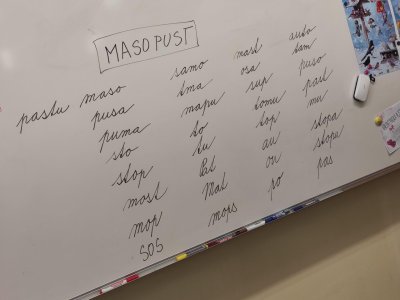 MASOPUST
pastu maso samo mast auto
pusa tma osa tam
puma mapu sup puso
sto to tomu past
stop tu top mu
most Pat au stopa
mop Mat ou stope
SOS mops po pas